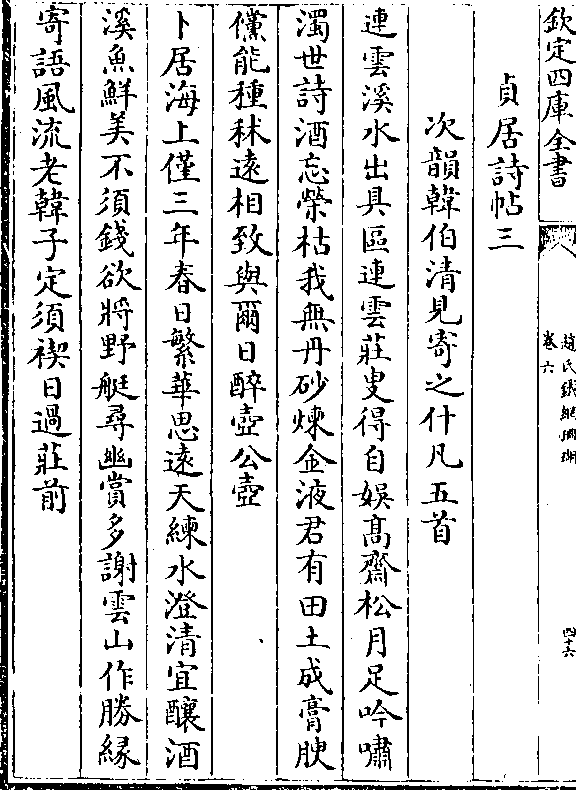 欽定四庫全書
趙氏鐵網珊瑚
卷六
四十六
貞居詩帖三
次韻韓伯清見寄之什凡五首
連雲溪水出具區連雲莊叟得自娛高齋松月足吟嘯
濁世詩酒忘榮枯我無丹砂煉金液君有田土成膏腴
儻能種秫遠相致與爾日醉壺公壺
卜居海上僅三年春日繁華思遠天練水澄清宜釀酒
溪魚鮮美不須錢欲將野艇尋幽賞多謝雲山作勝緣
寄語風流老韓子定須禊日過莊前